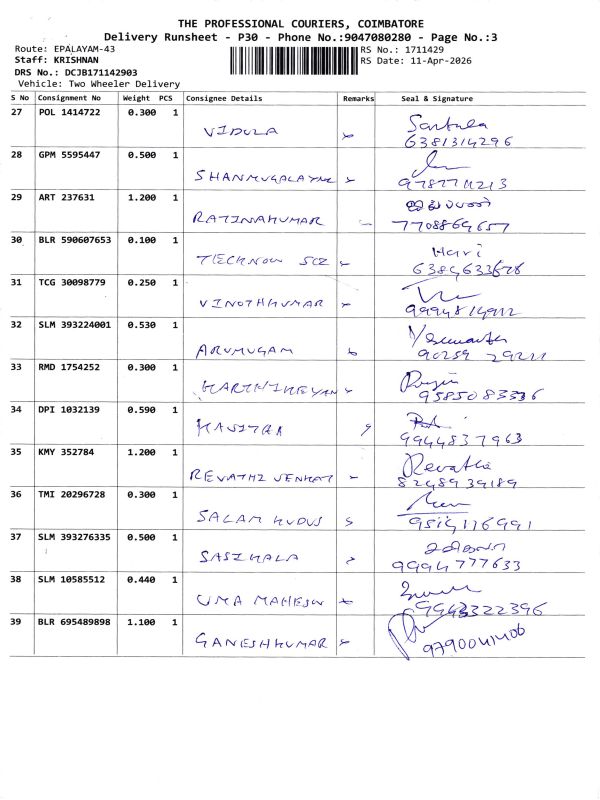 THE PROFESSIONAL COURIERS, COIMBATORE
Delivery Runsheet - P30 - Phone No.:9047080280 - Page No.:3
Route: EPALAYAM-43 RS No.: 1711429
Staff: KRISHNAN RS Date: 11-Apr-2026
DRS No.: DCJB171142903
Vehicle: Two Wheeler Delivery
S No Consignment No Weight PCS Consignee Details Remarks Seal & Signature
27 POL 1414722 0.300 1
VIDULA
6381314296
28 GPM 5595447 0.500 1
29 ART 237631 1.200 1
RATINAKUMAR
7708869657
30 BLR 590607653 0.100 1 Hari
31 TCG 30098779 0.250 1
VINOTHKUMAR
9994814912
32 SLM 393224001 0.530 1
ARUMUGAM
90259 29211
33 RMD 1754252 0.300 1
KARTHIKEYAN
9585083336
34 DPI 1032139 0.590 1
KAVITRA
9944837963
35 KMY 352784 1.200 1 Revathi
REVATHI VENKAT 8248939189
36 TMI 20296728 0.300 1
SALAM KUDUS
9514116991
37 SLM 393276335 0.500 1 சசிகலா
SASIKALA 9994777633
38 SLM 10585512 0.440 1
UMA MAHESW
39 BLR 695489898 1.100 1
GANESHKUMAR